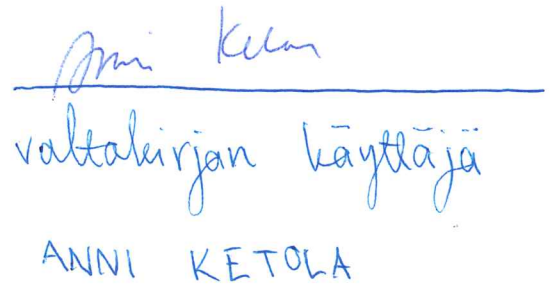 Anni Ketola
valtakirjan käyttäjä
ANNI KETOLA